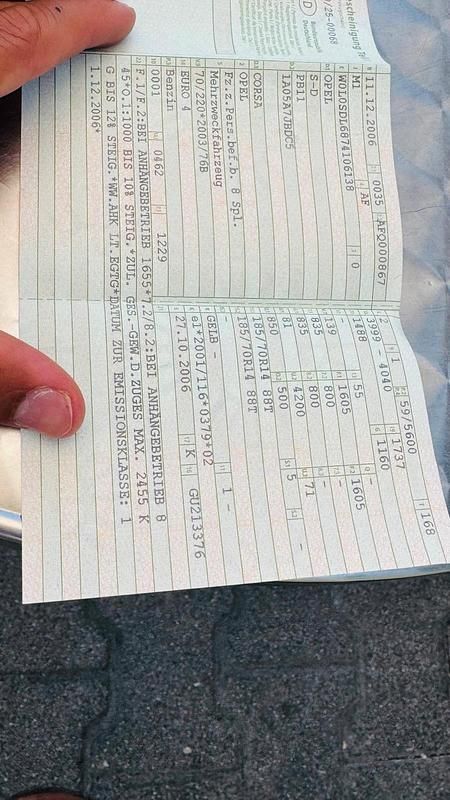 cheinigung T
/25-00068
D Bundesrepublik Deutschland
11.12.2006 0035 AFQ000867
M1 AF
W0L0SDL6874106138 0
OPEL
S-D
PB11
1A05A7JBDC5
CORSA
OPEL
Fz.z.Pers.bef.b. 8 Spl.
Mehrzweckfahrzeug
70/220*2003/76B
EURO 4
Benzin
0001 0462 1229
2 1 59/5600 168
3999 - 4040 1737
1488 - 1160 -
- 55 1605 1605
139 1605 - -
835 800 -
835 800 - 71
81 4200 5 -
850 500
185/70R14 88T
185/70R14 88T
GELB - 1 -
e1*2001/116*0379*02
27.10.2006 K GU213376
F.1/F.2:BEI ANHÄNGEBETRIEB 1655*7.2/8.2:BEI ANHÄNGEBETRIEB 8
45*O.1:1000 BIS 10% STEIG.*ZUL. GES.-GEW.D.ZUGES MAX. 2455 K
G BIS 12% STEIG.*WW.AHK LT.EGTG*DATUM ZUR EMISSIONSKLASSE: 1
1.12.2006*